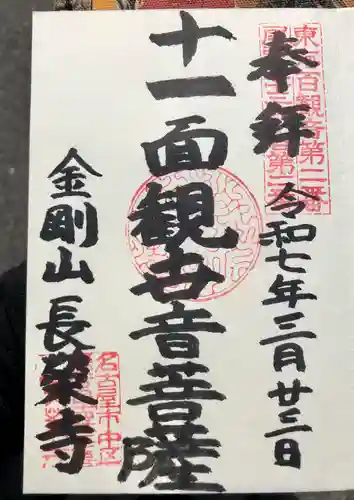 奉拝
令和七年三月廿三日
十一面観世音菩薩
金剛山 長榮寺
東海百観音第二番
名古屋市中区